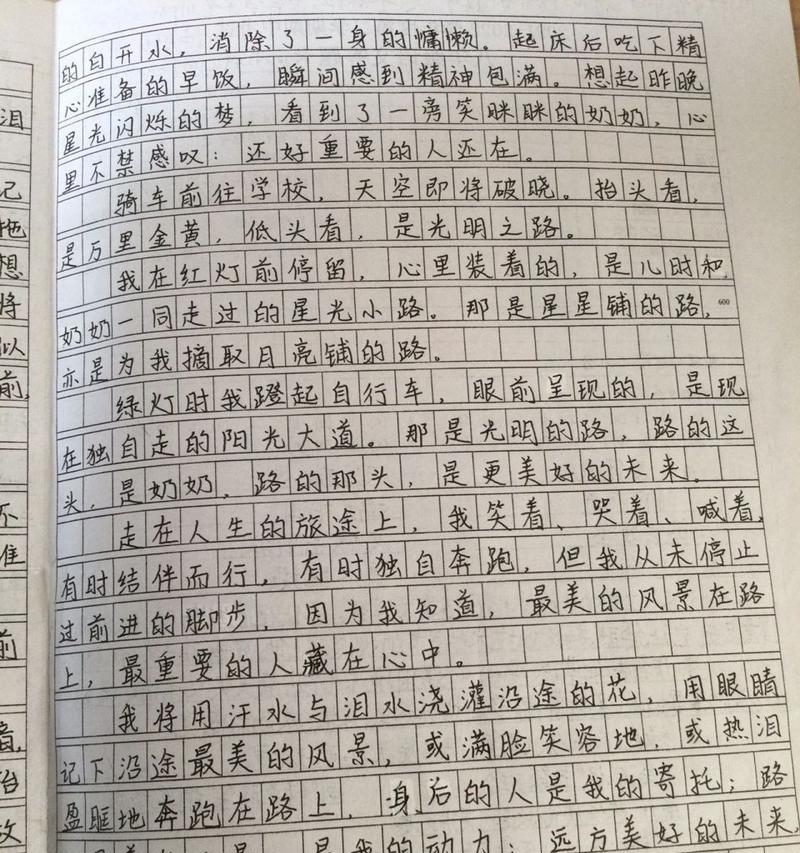 的白开水，消除了一身的慵懒。起床后吃下精
心准备的早饭，瞬间感到精神包满。想起昨晚
星光闪烁的梦，看到了一旁笑眯眯的奶奶，心
里不禁感叹：还好重要的人还在。
骑车前往学校，天空即将破晓。抬头看，
是万里金黄，低头看，是光明之路。
我在红灯前停留，心里装着的，是儿时和
奶奶一同走过的星光小路。那是星星铺的路，
600
亦是为我摘取月亮铺的路。
绿灯时我蹬起自行车，眼前呈现的，是现
在独自走的阳光大道。那是光明的路，路的这
头，是奶奶，路的那头，是更美好的未来。
走在人生的旅途上，我笑着、哭着、喊着，
有时结伴而行，有时独自奔跑，但我从未停止
过前进的脚步，因为我知道，最美的风景在路
上，最重要的人藏在心中。
我将用汗水与泪水浇灌沿途的花，用眼睛
记下沿途最美的风景，或满脸笑容地，或热泪
盈眶地奔跑在路上，身后的人是我的寄托；路
是我的动力；远方美好的未来，
泪
记
拖
想
将
以
前，
不
准
前